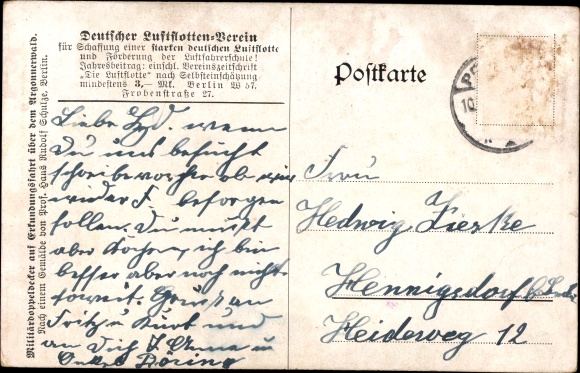 Deutscher Luftflotten-Verein
für Schaffung einer starken deutschen Luftflotte
und Förderung der Luftfahrerschule!
Jahresbeitrag: einschl. Vereinszeitschrift
„Die Luftflotte" nach Selbsteinschätzung
mindestens 3,— Mk. Berlin W 57,
Frobenstraße 27.
Militärdoppeldecker auf Erkundungsfahrt über dem Argonnerwald.
Nach einem Gemälde von Prof. Hans Rudolf Schulze, Berlin.
Postkarte
Liebe Hed. wenn
Du uns besuchst
schreibe vorher ob wir
wieder F. besorgen
sollen. Du mußt
aber kochen, ich bin
besser aber noch nicht
soweit. Gruß an
Fritz u Kurt und
an Dich T. Anna u
Onkel Döring
Frau
Hedwig Zierke
Hennigsdorf b/
Heideweg 12